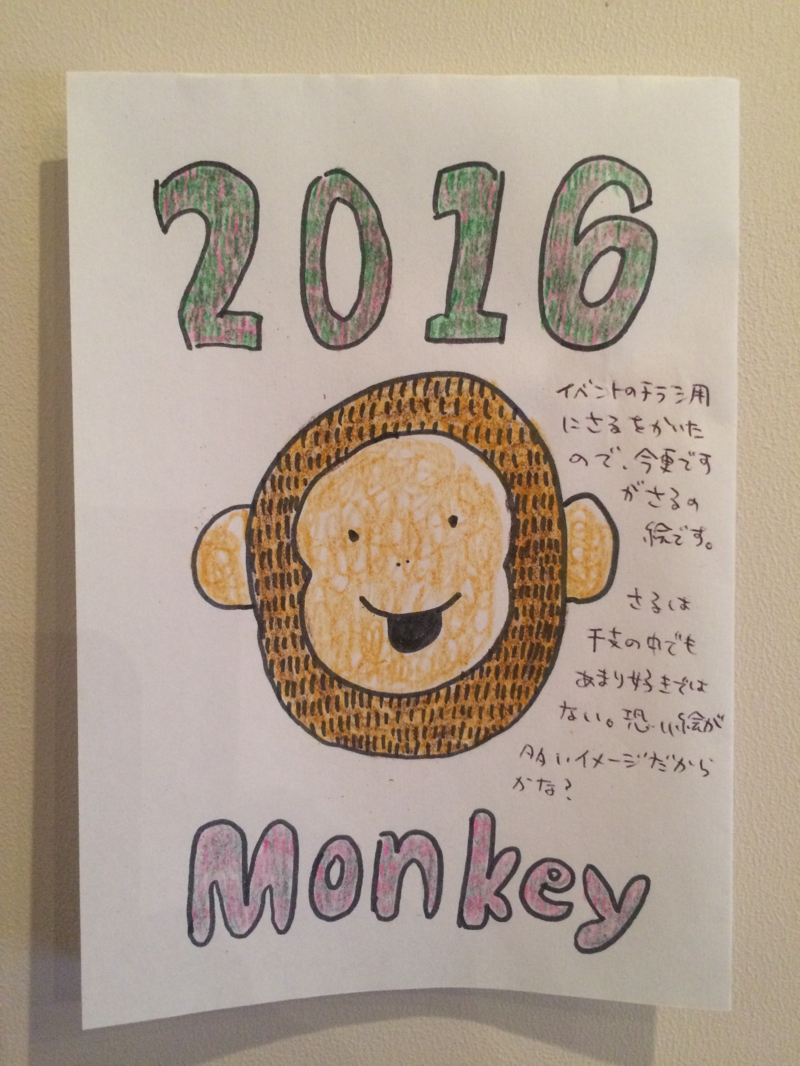 2016
イベントのチラシ用
にさるをかいた
ので、今更です
がさるの
絵です。
さるは
干支の中でも
あまり好きでは
ない。恐い絵が
多いイメージだから
かな?
Monkey